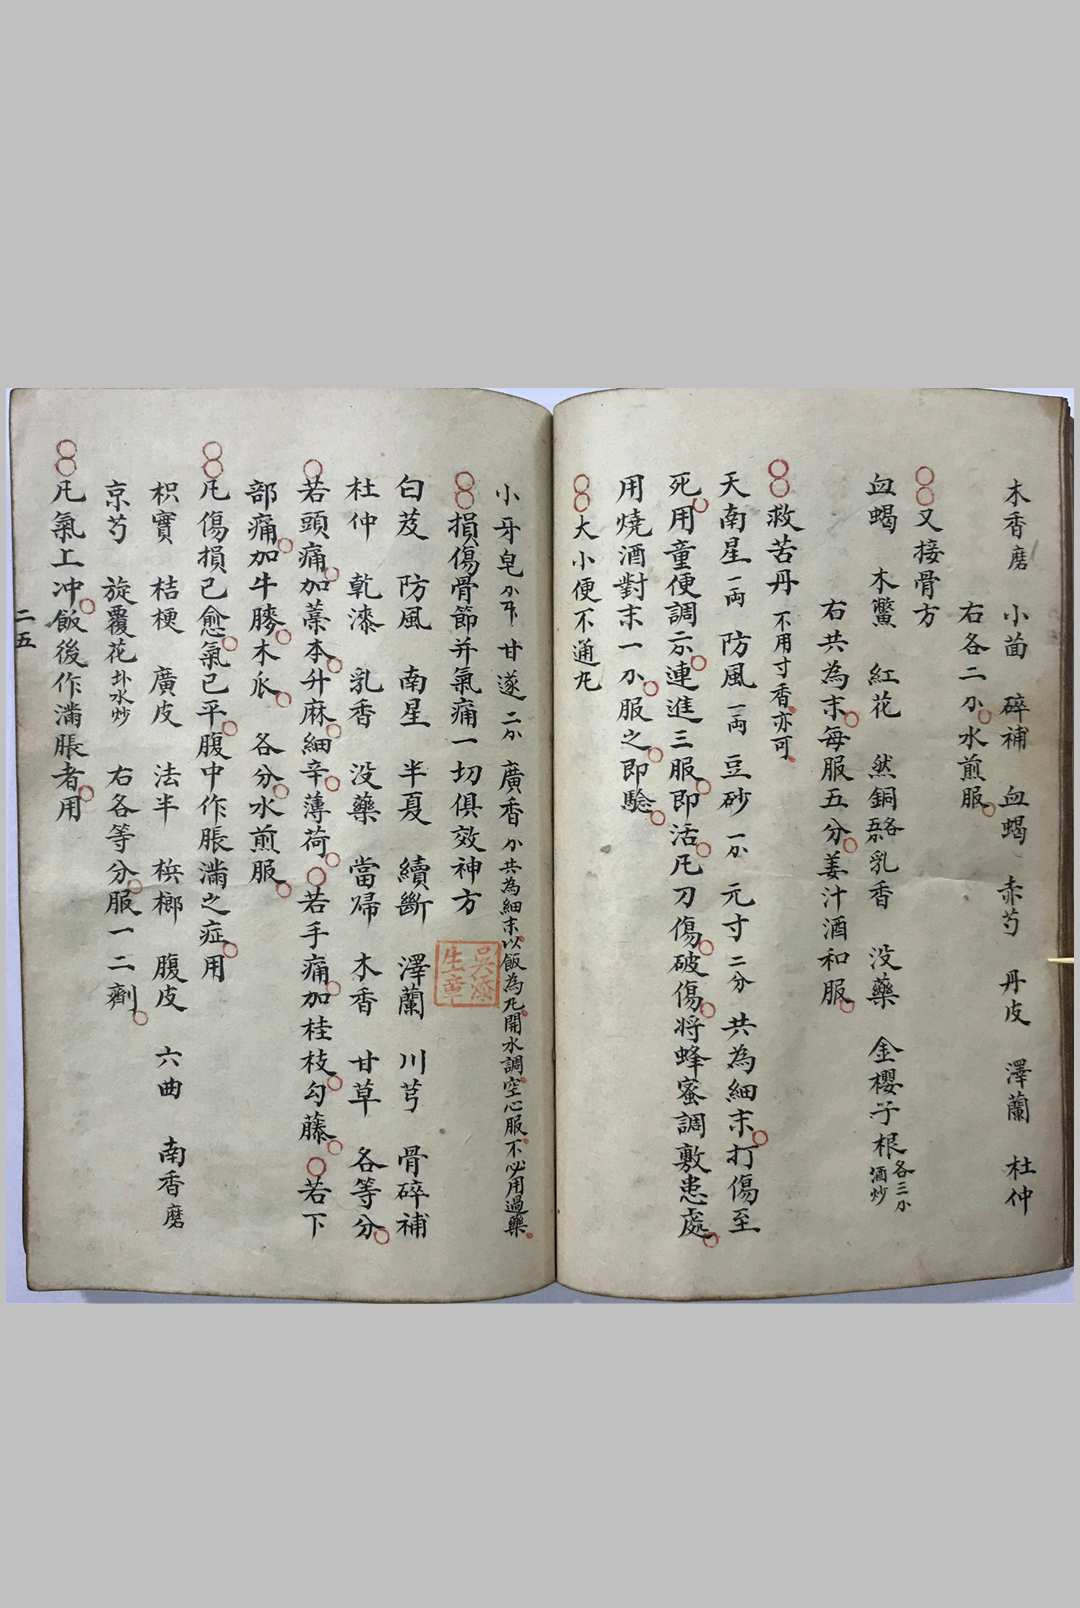 木香磨　小茴　碎補　血蝎　赤芍　丹皮　澤蘭　杜仲
右各二分水煎服
又接骨方
血蝎　木鱉　紅花　然銅　乳香　没藥　金櫻子根各三分酒炒
右共為末每服五分姜汁酒和服
救苦丹　不用寸香亦可
天南星一両　防風一両　豆砂一分　元寸二分　共為細末打傷至
死用童便調示連進三服即活凡刀傷破傷将蜂蜜調敷患處
用燒酒對末一分服之即驗
大小便不通凡
小牙皂　甘遂二分　廣香分共為細末以飯為凡開水調空心服不必用過藥
損傷骨節并氣痛一切俱效神方
白芨　防風　南星　半夏　續斷　澤蘭　川芎　骨碎補
杜仲　乾漆　乳香　没藥　當歸　木香　甘草　各等分
若頭痛加藁本升麻細辛薄荷若手痛加桂枝勾藤若下
部痛加牛膝木瓜　各分水煎服
凡傷損已愈氣已平腹中作脹滿之症用
枳實　桔梗　廣皮　法半　梹榔　腹皮　六曲　南香磨
京芍　旋覆花　右各等分服一二劑
凡氣上冲飯後作滿脹者用
二五